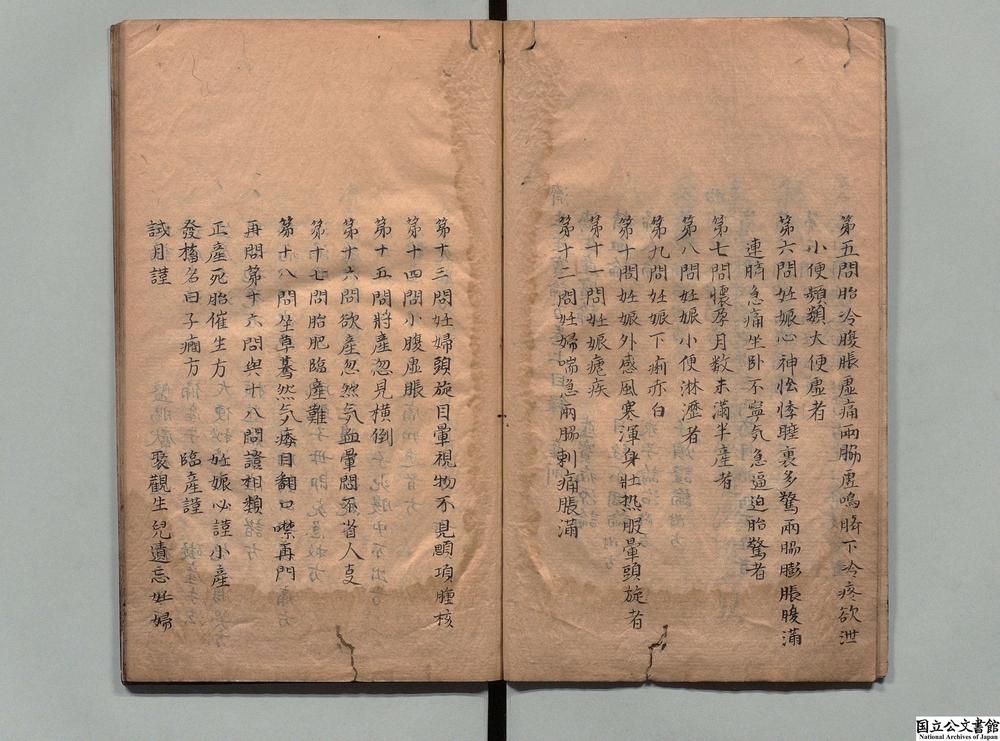 第五問胎冷腹脹虛痛兩脇虛鳴臍下冷疼欲泄
小便頻頻大便虛者
第六問妊娠心神忪悸睡裏多驚兩脇膨脹腹滿
連臍急痛坐卧不寧气急逼迫胎驚者
第七問懷孕月數未滿半產者
第八問妊娠小便淋瀝者
第九問妊娠下痢赤白
第十問妊娠外感風寒渾身壯熱眼暈頭旋者
第十一問妊娠瘧疾
第十二問妊婦喘急兩脇刺痛脹滿
第十三問妊婦頭旋目暈視物不見頤項腫核
第十四問小腹虛脹
第十五問將產忽見橫倒
第十六問欲產忽然气血暈悶不省人事
第十七問胎肥臨產難
第十八問坐草驀然气痿目翻口噤再問
再問第十六問與十八問證相類
正產死胎催生方 妊娠必謹小產
發搐名曰子癎方 臨產謹
誡月謹 衆觀生兒遺忘妊婦
国立公文書館
National Archives of Japan